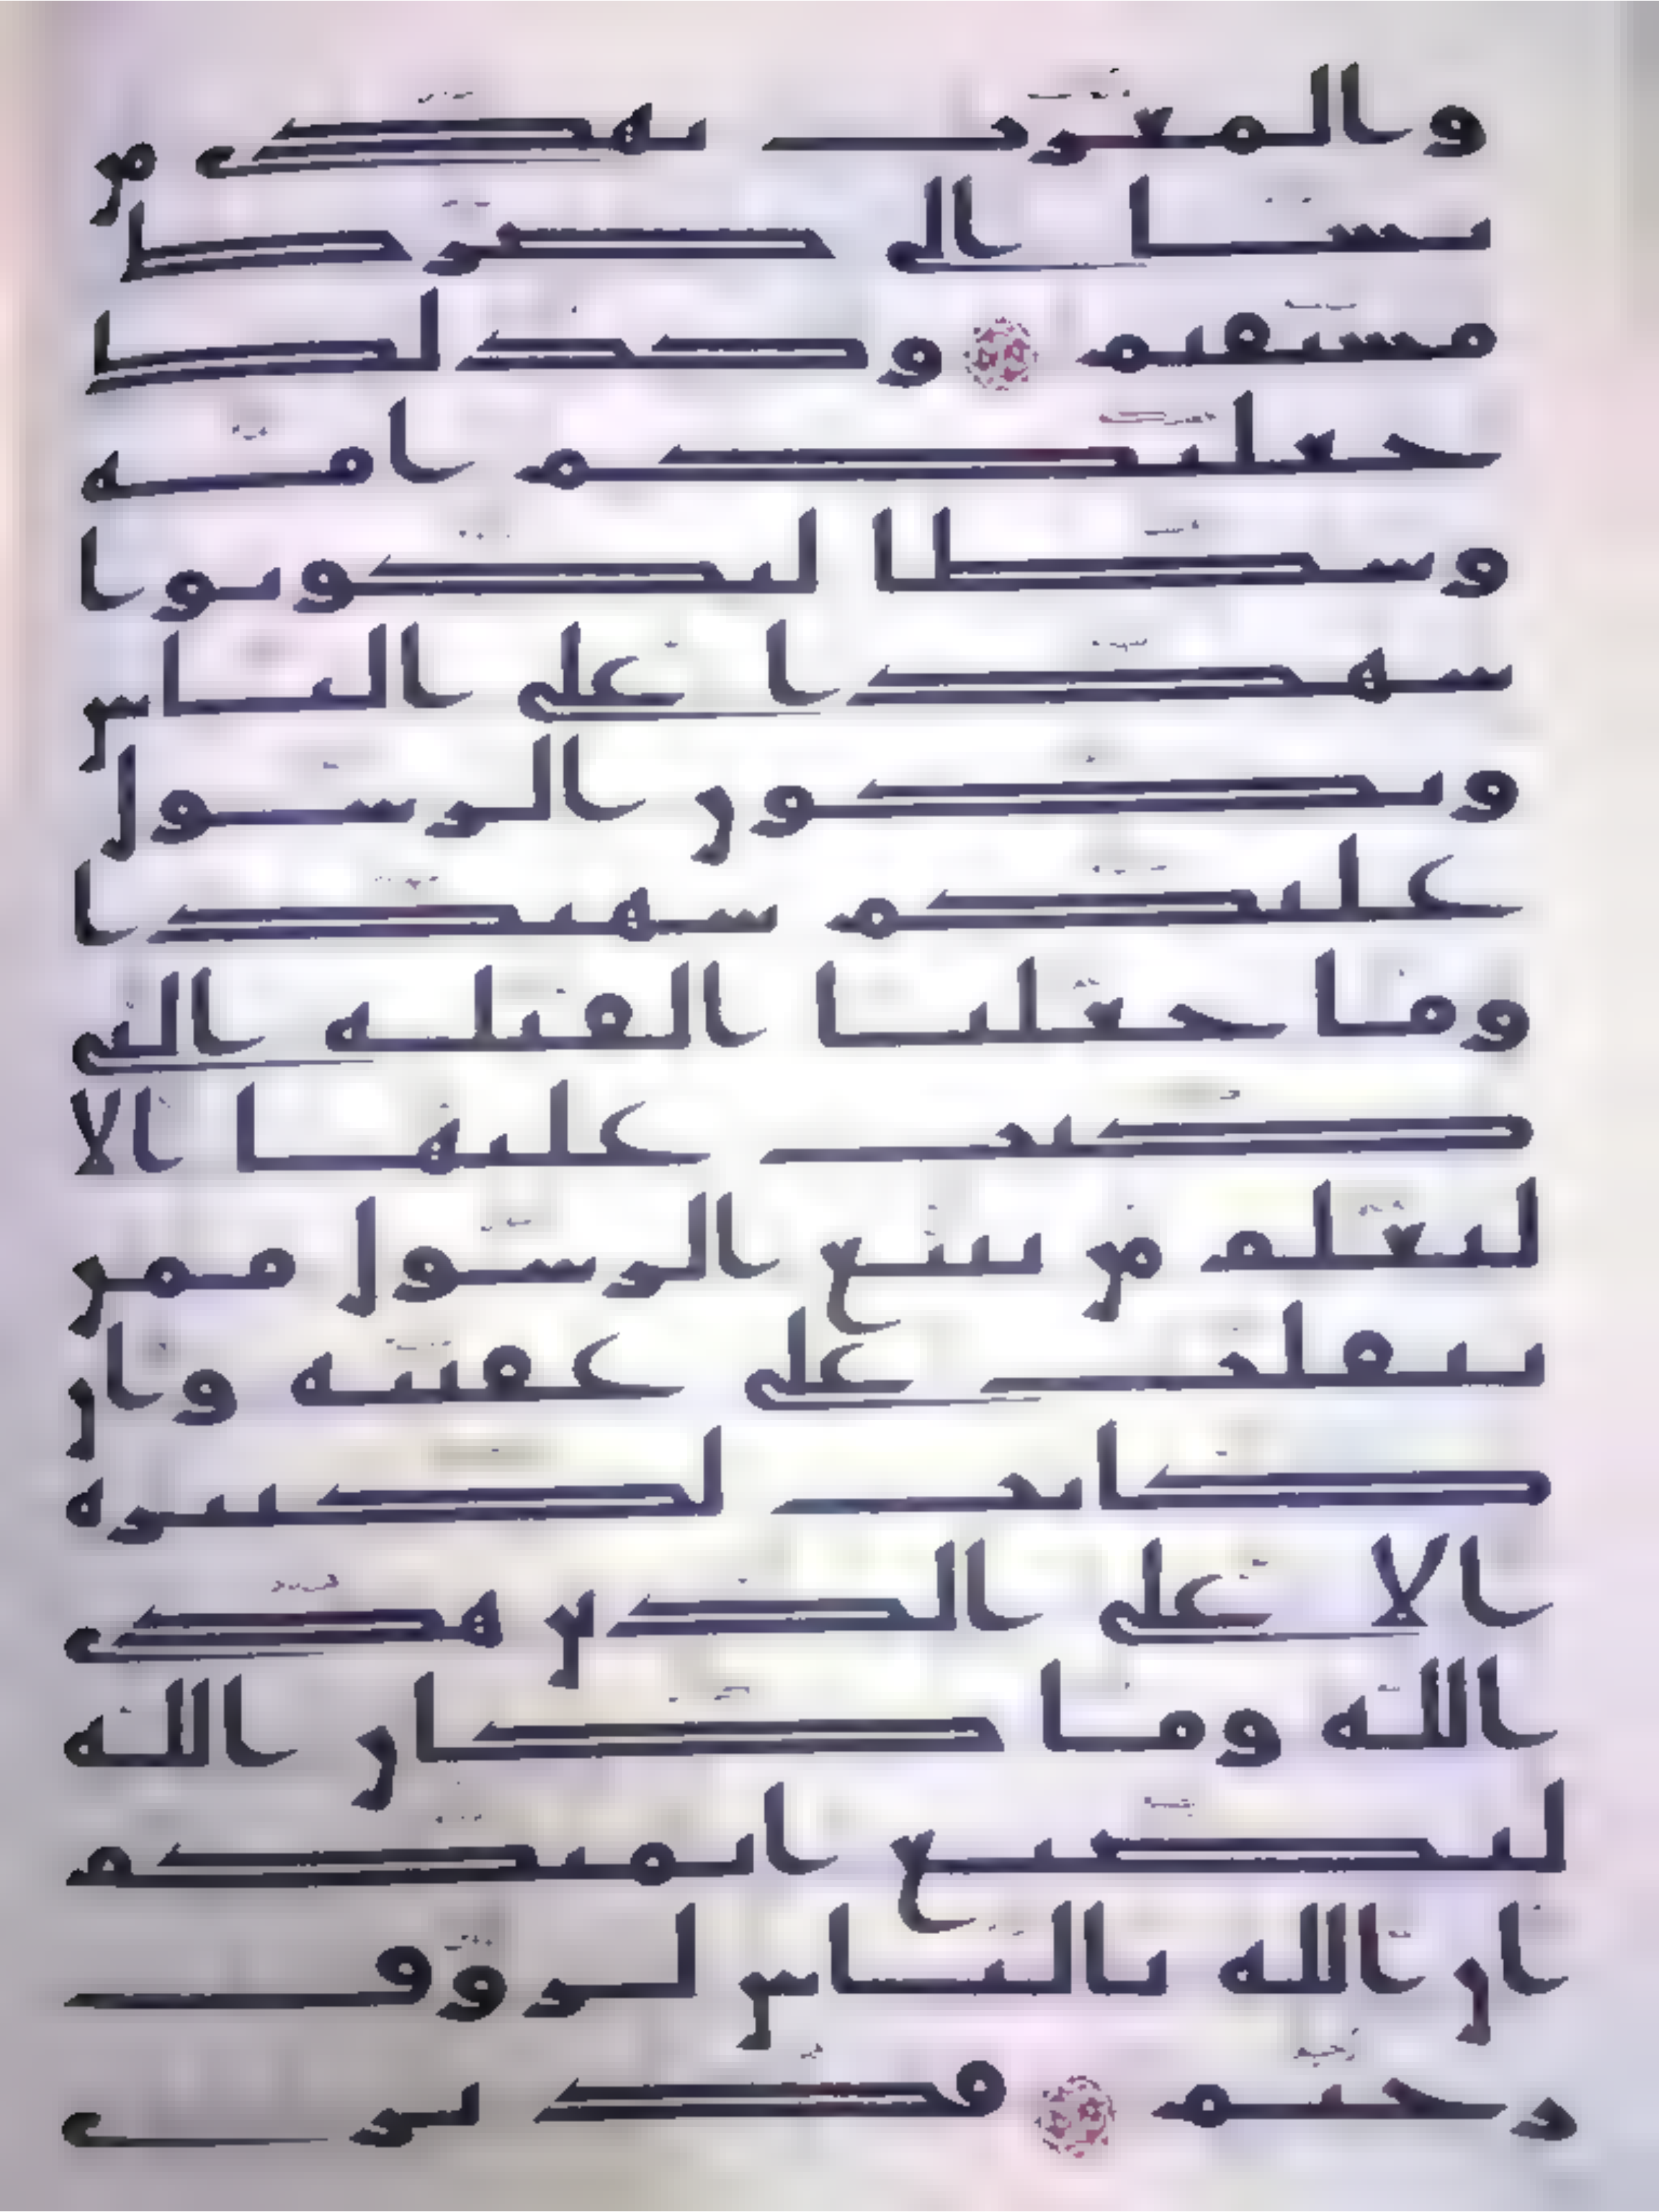 والمغرب يهدي من
يشا الى صرط
مستقيم وكذلك
جعلنكم امة
وسطا لتكونوا
شهدا على الناس
ويكون الرسول
عليكم شهيدا
وما جعلنا القبلة التي
كنت عليها الا
لنعلم من يتبع الرسول ممن
ينقلب على عقبيه وان
كانت لكبيرة
الا على الذين هدى
الله وما كان الله
ليضيع ايمنكم
ان الله بالناس لروف
رحيم قد نرى